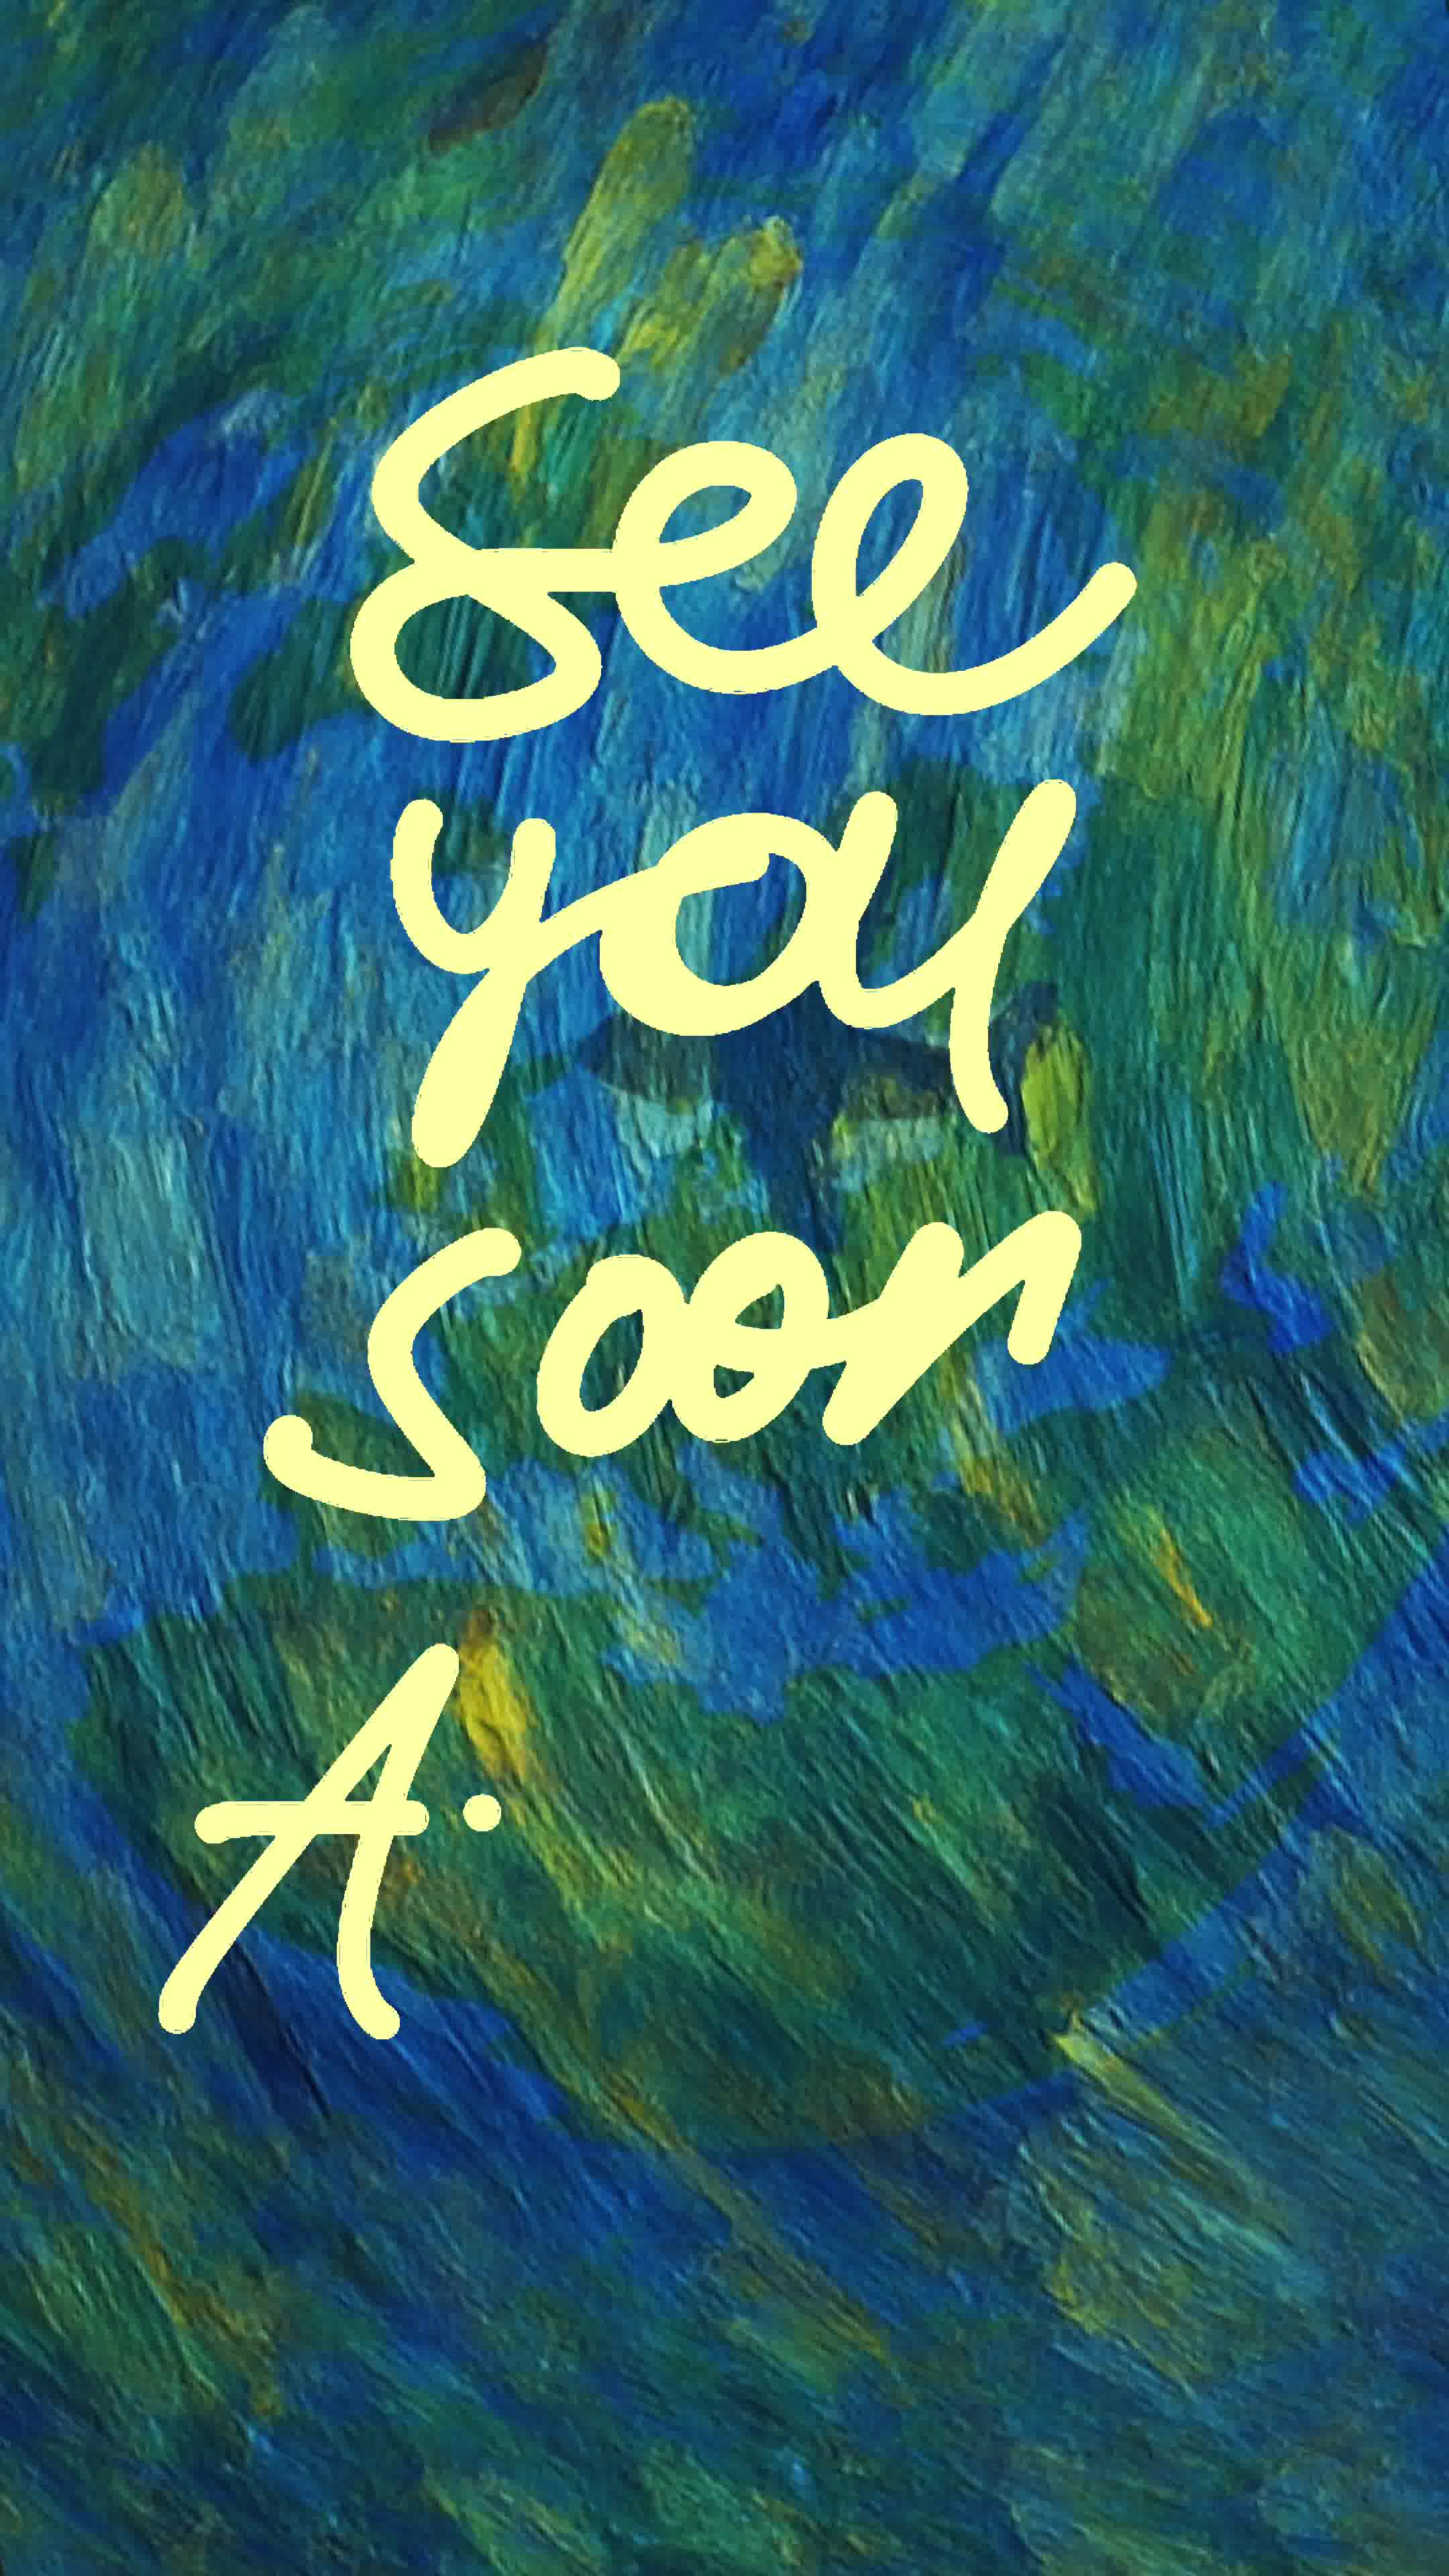 See
you
soon
A.